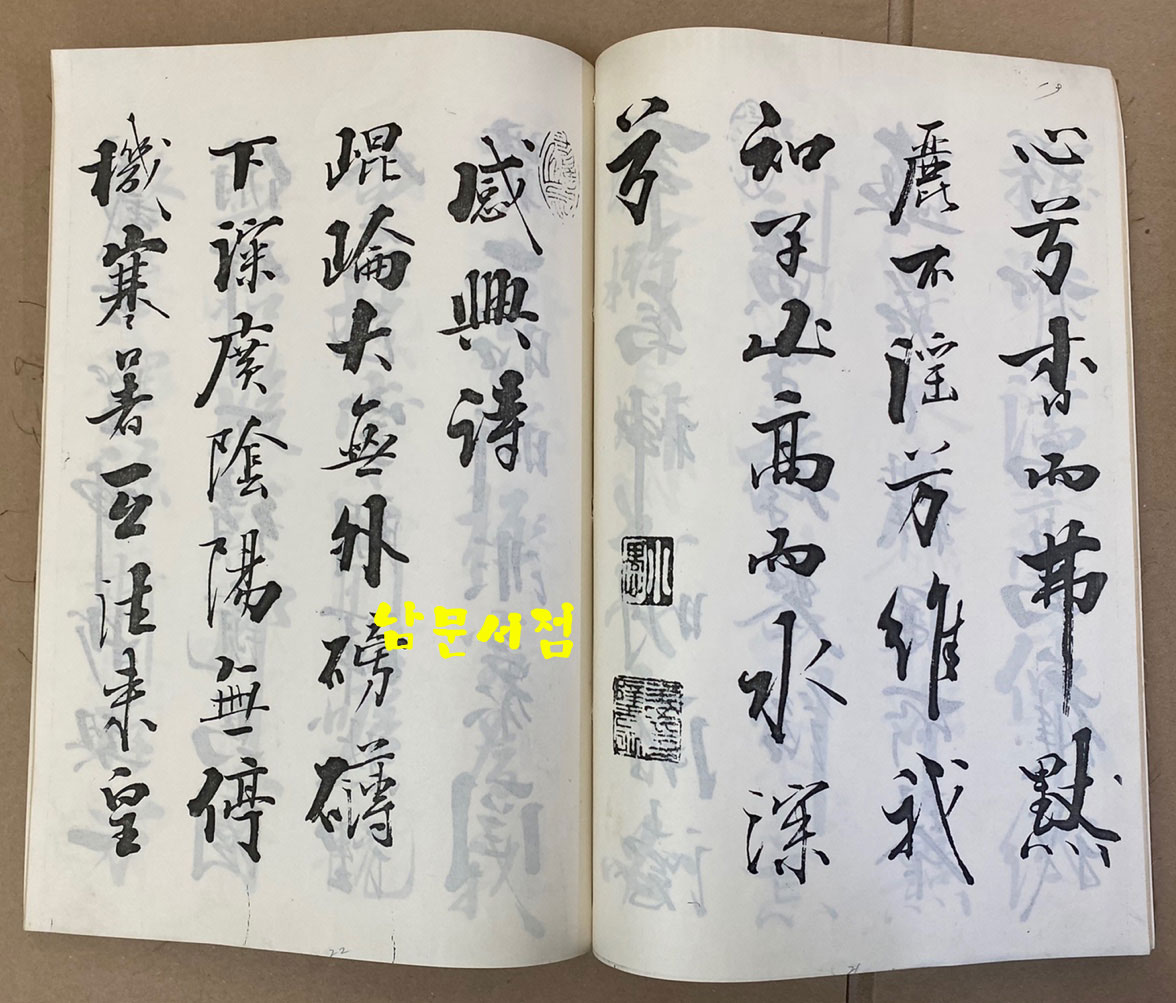 心兮杳而弗默
麗不淫兮維我
知子山高而水深
兮
感興詩
崐崘大無外磅礴
下深廣陰陽無停
機寒暑互往來皇
남문서점
22
21